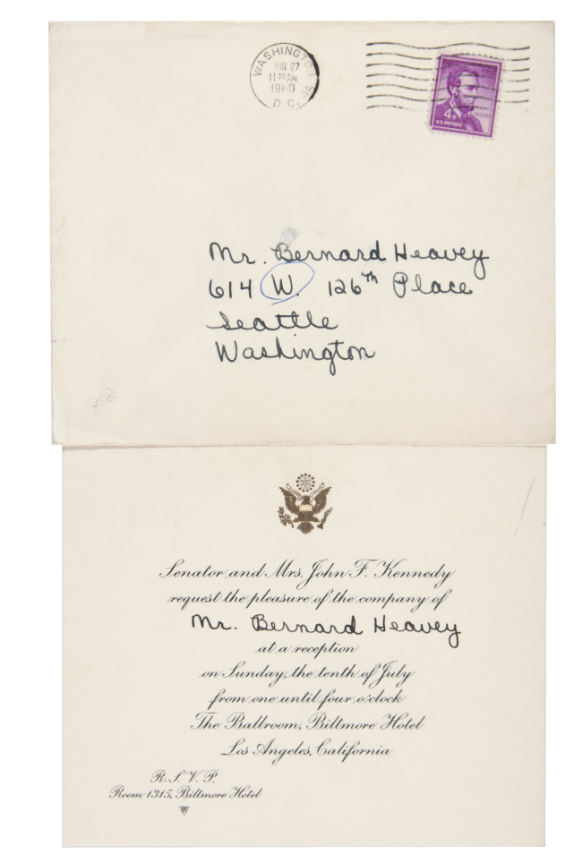 WASHINGTON
JUN 27
11 30 AM
1960
D. C.
4¢
U.S. POSTAGE
Mr. Bernard Heavey
614 W. 126th Place
Seattle
Washington
Senator and Mrs. John F. Kennedy
request the pleasure of the company of
Mr. Bernard Heavey
at a reception
on Sunday, the tenth of July
from one until four o'clock
The Ballroom, Biltmore Hotel
Los Angeles, California
R. S. V. P.
Room 1315, Biltmore Hotel